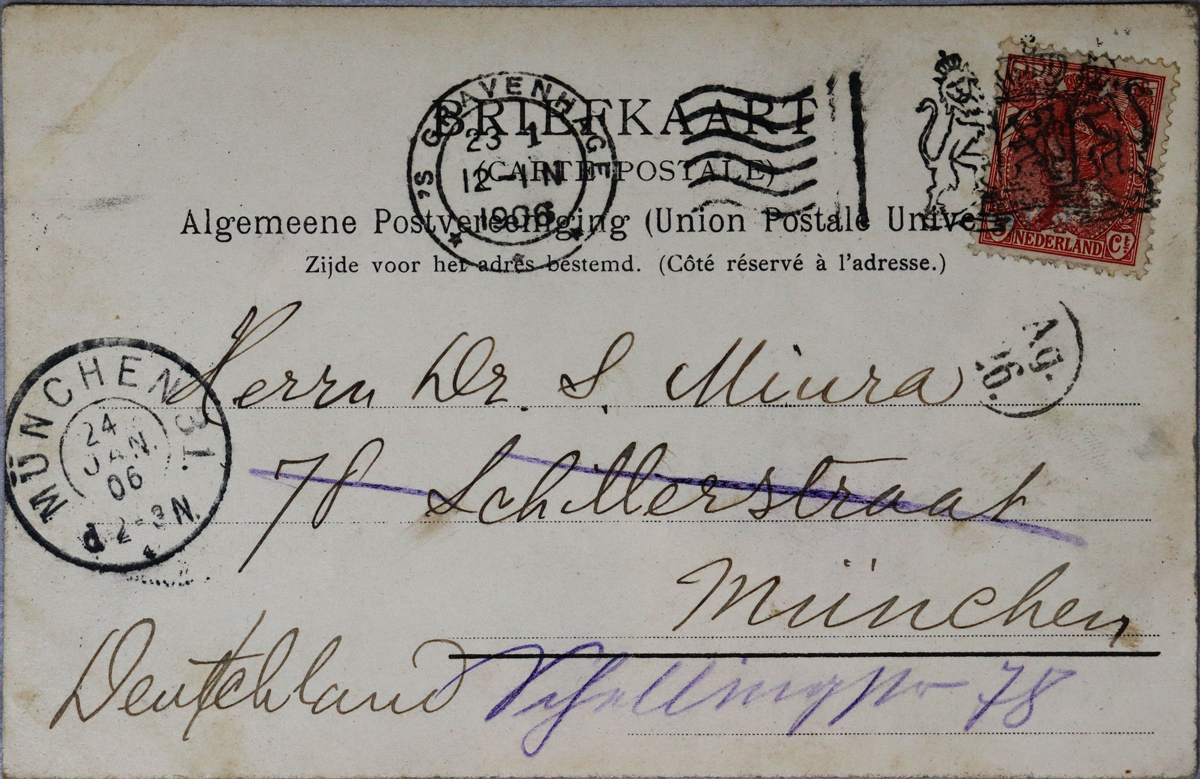 BRIEFKAART
(CARTE POSTALE)
Algemeene Postvereeniging (Union Postale Univers
Zijde voor het adres bestemd. (Côté réservé à l'adresse.)
'S GRAVENHAGE
23 1
12-1 N
1906
5 NEDERLAND Ct
Ag.
26.
MÜNCHEN 31.
24
JAN.
06
d 2-3 N.
Herrn Dr. S. Miura
78 Schillerstraat
München
Deutchland
Schellingstr 78